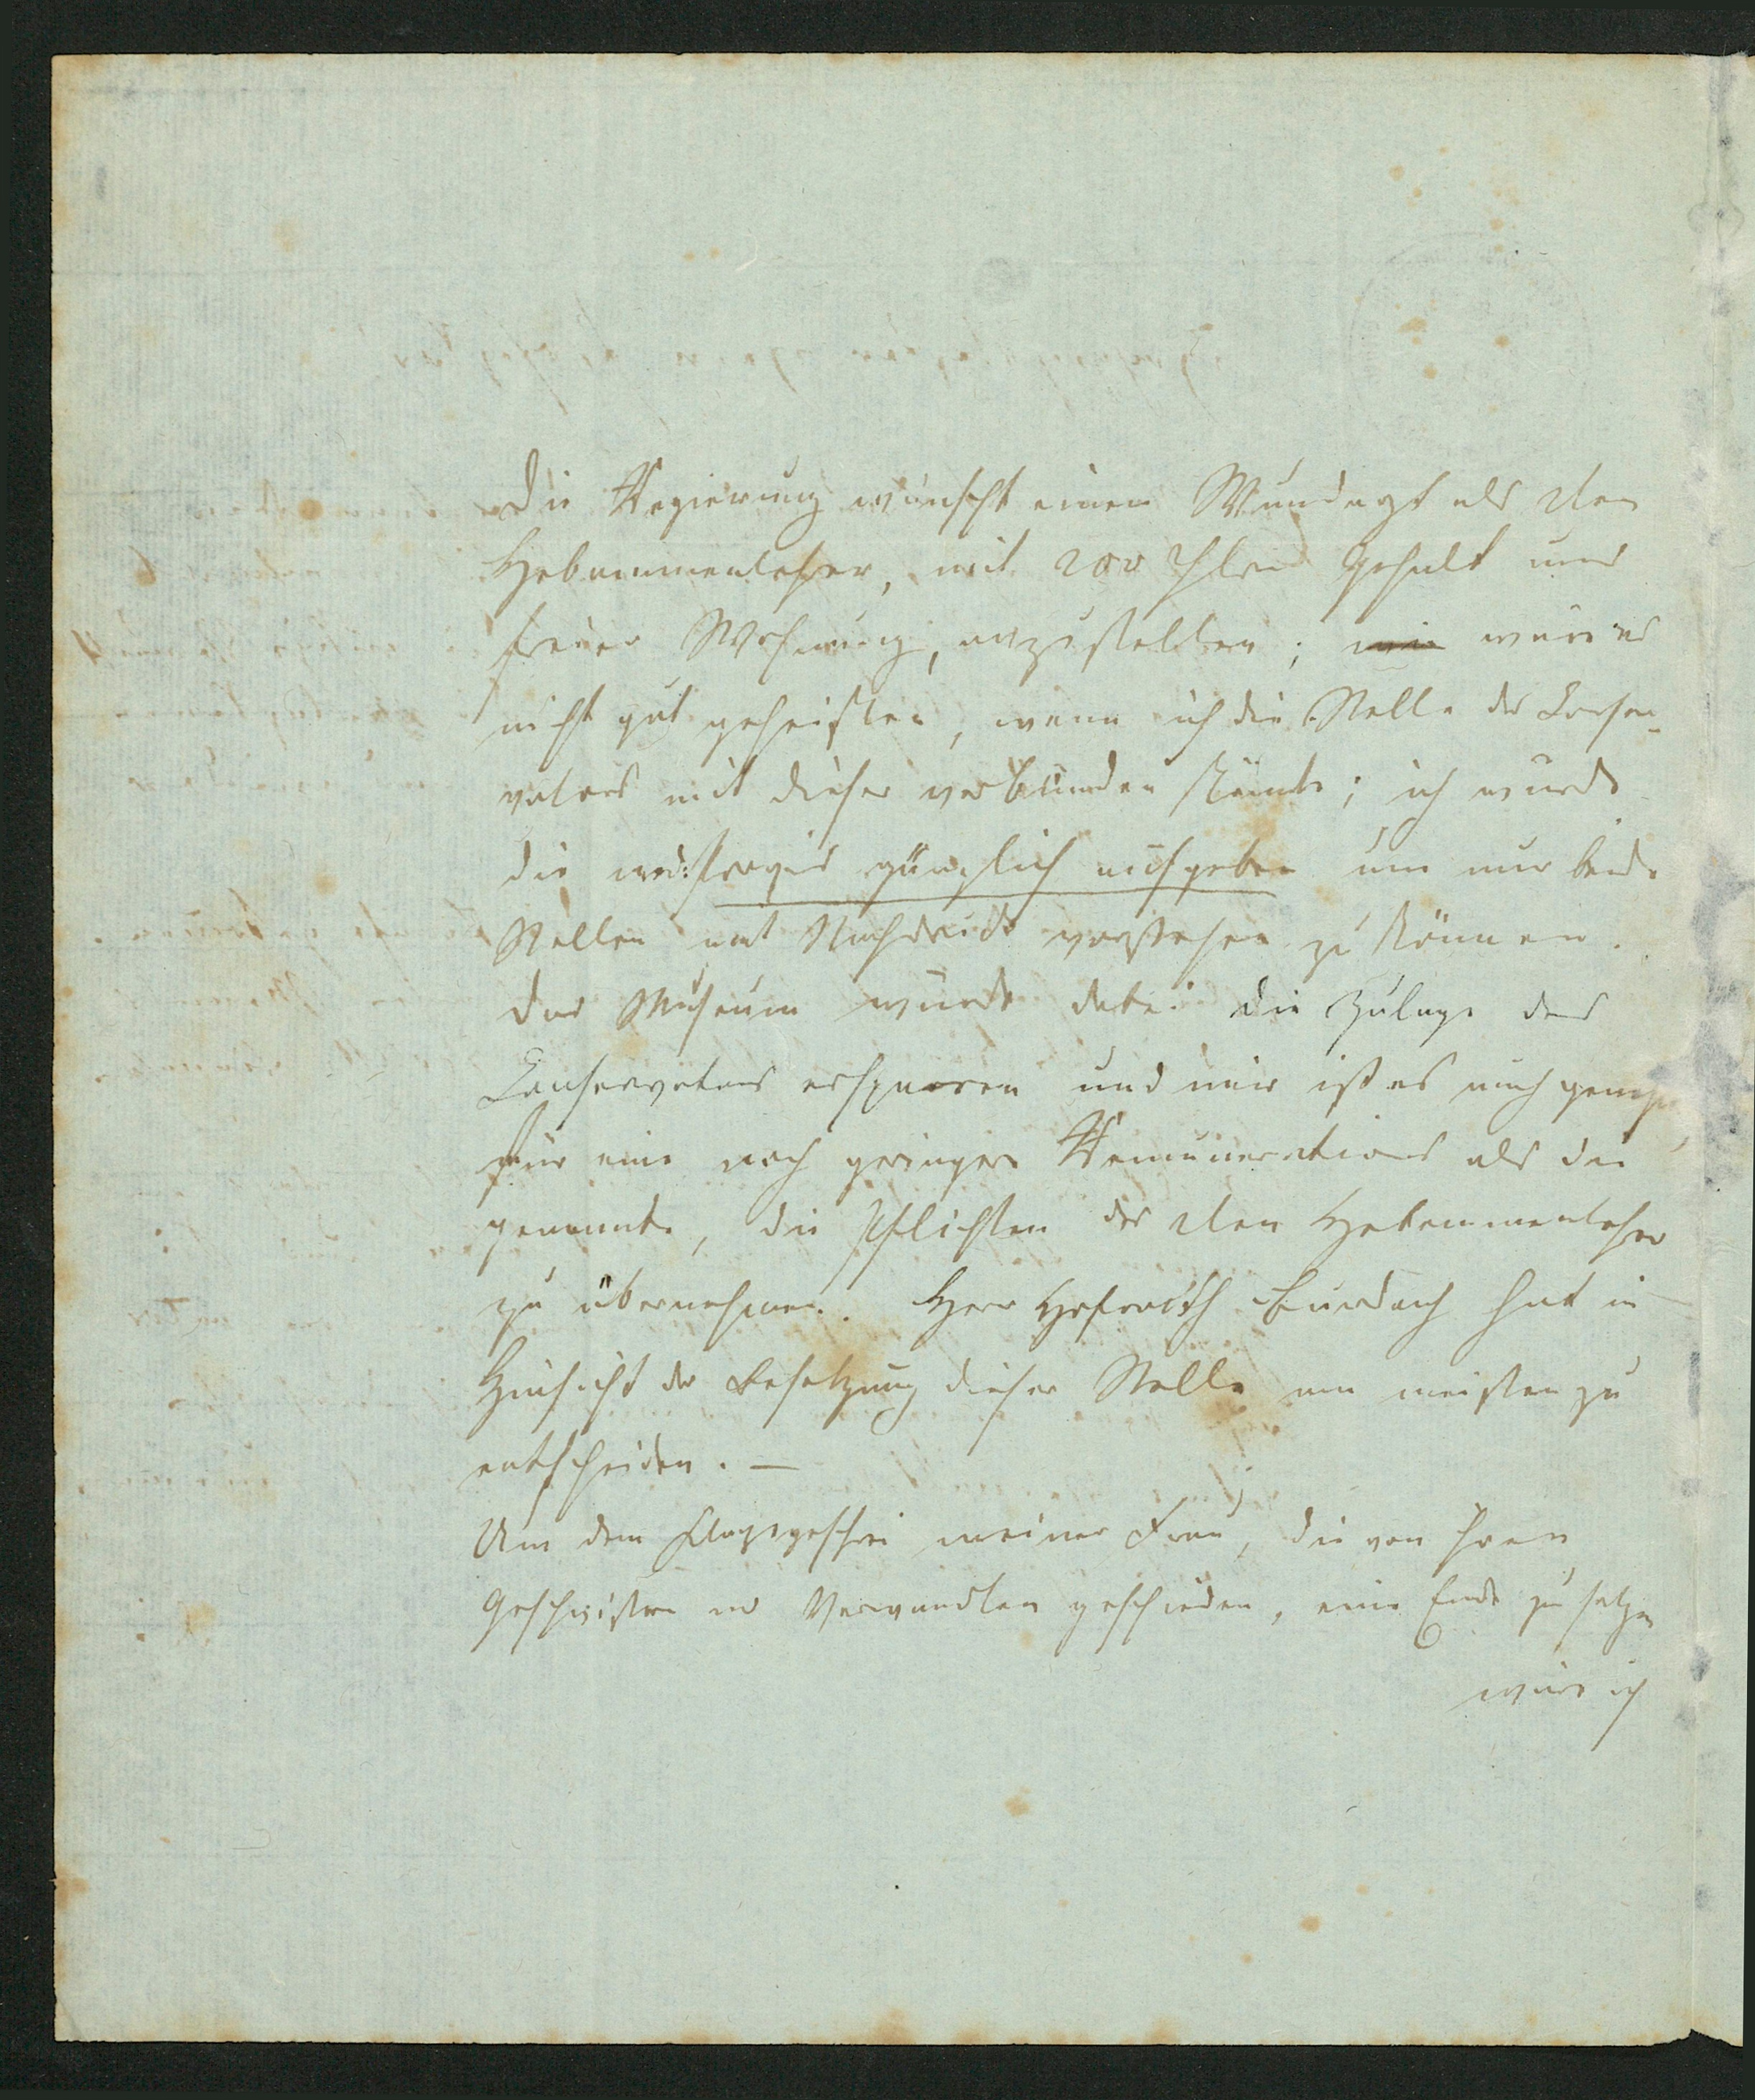 Die Regierung wünscht einen Wundarzt als 2ten
Hebammenlehrer, mit 200 Thlrn Gehalt und
freier Wohnung, anzustellen; wäre es
nicht gut geheißen, wenn ich die Stelle des Conser-
vators mit dieser verbunden könnte; ich würde
die med: Praxis gänzlich aufgeben um nur beide
Stellen mit Nachdruck vorstehen zu können.
Das Museum würde dabei die Zulage des
Conservators ersparen und mir ist es auch genug
für eine noch geringere Remuneration als die
genannte, die Pflichten des 2ten Hebammenlehrer
zu übernehmen. Herr Hofrath Burdach hat in
Hinsicht der Besetzung dieser Stelle am meisten zu
entscheiden. —
Um dem Klagegeschrei meiner Frau, die von ihren
Geschwistern und Verwandten geschieden, ein Ende zu setzen
wäre ich